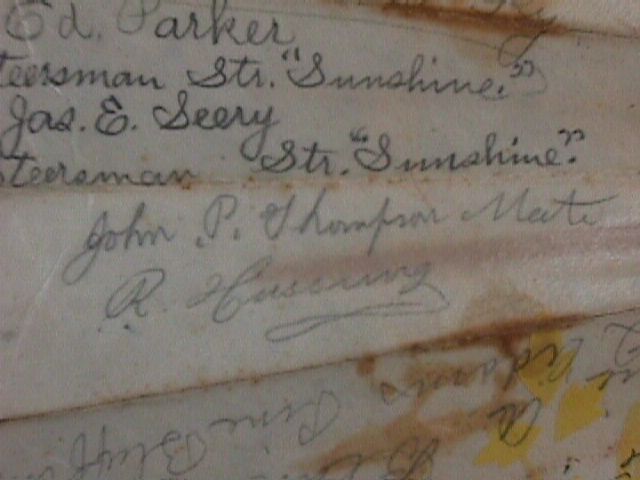 Ed. Parker
teersman Str. "Sunshine."
Jas. E. Seery
Steersman Str. "Sunshine".
John P. Thompson Mate
R.
Adams
Pine Bluff